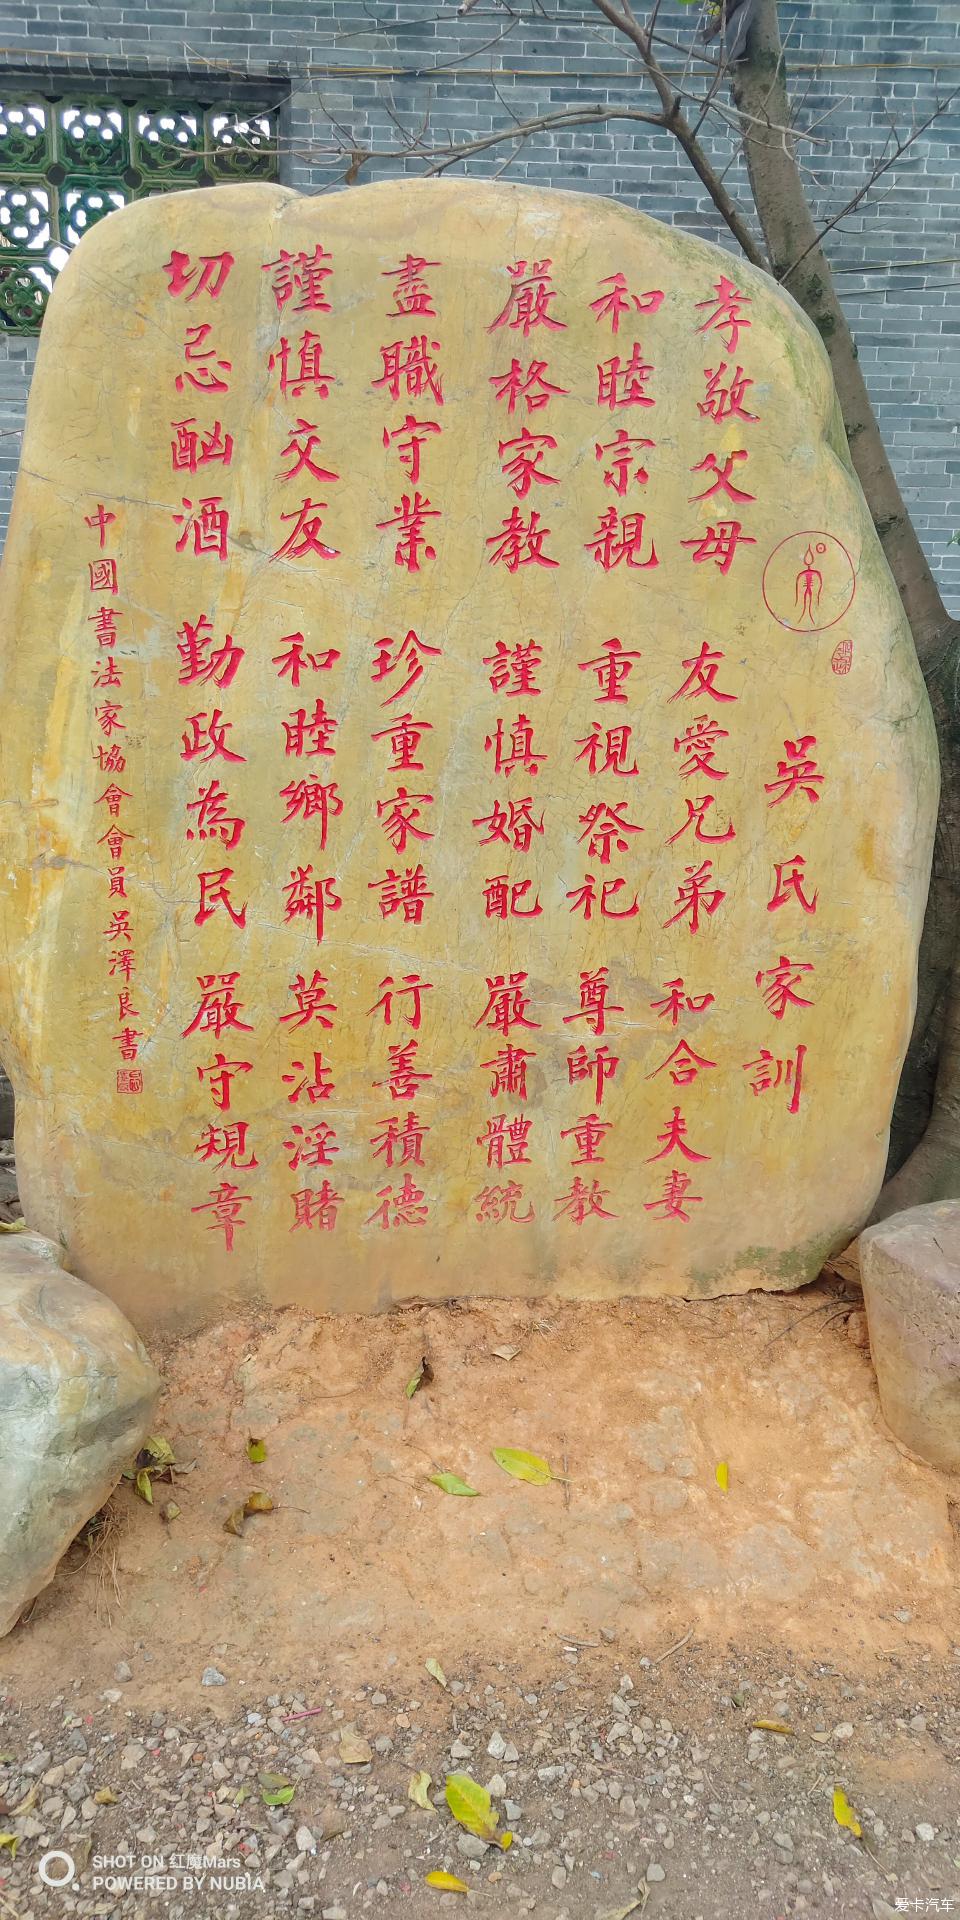 吳氏家訓
孝敬父母 友愛兄弟 和合夫妻
和睦宗親 重視祭祀 尊師重教
嚴格家教 謹慎婚配 嚴肅體統
盡職守業 珍重家譜 行善積德
謹慎交友 和睦鄉鄰 莫沾淫賭
切忌酗酒 勤政為民 嚴守規章
中國書法家協會會員吳澤良書
SHOT ON 红魔Mars
POWERED BY NUBIA
爱卡汽车